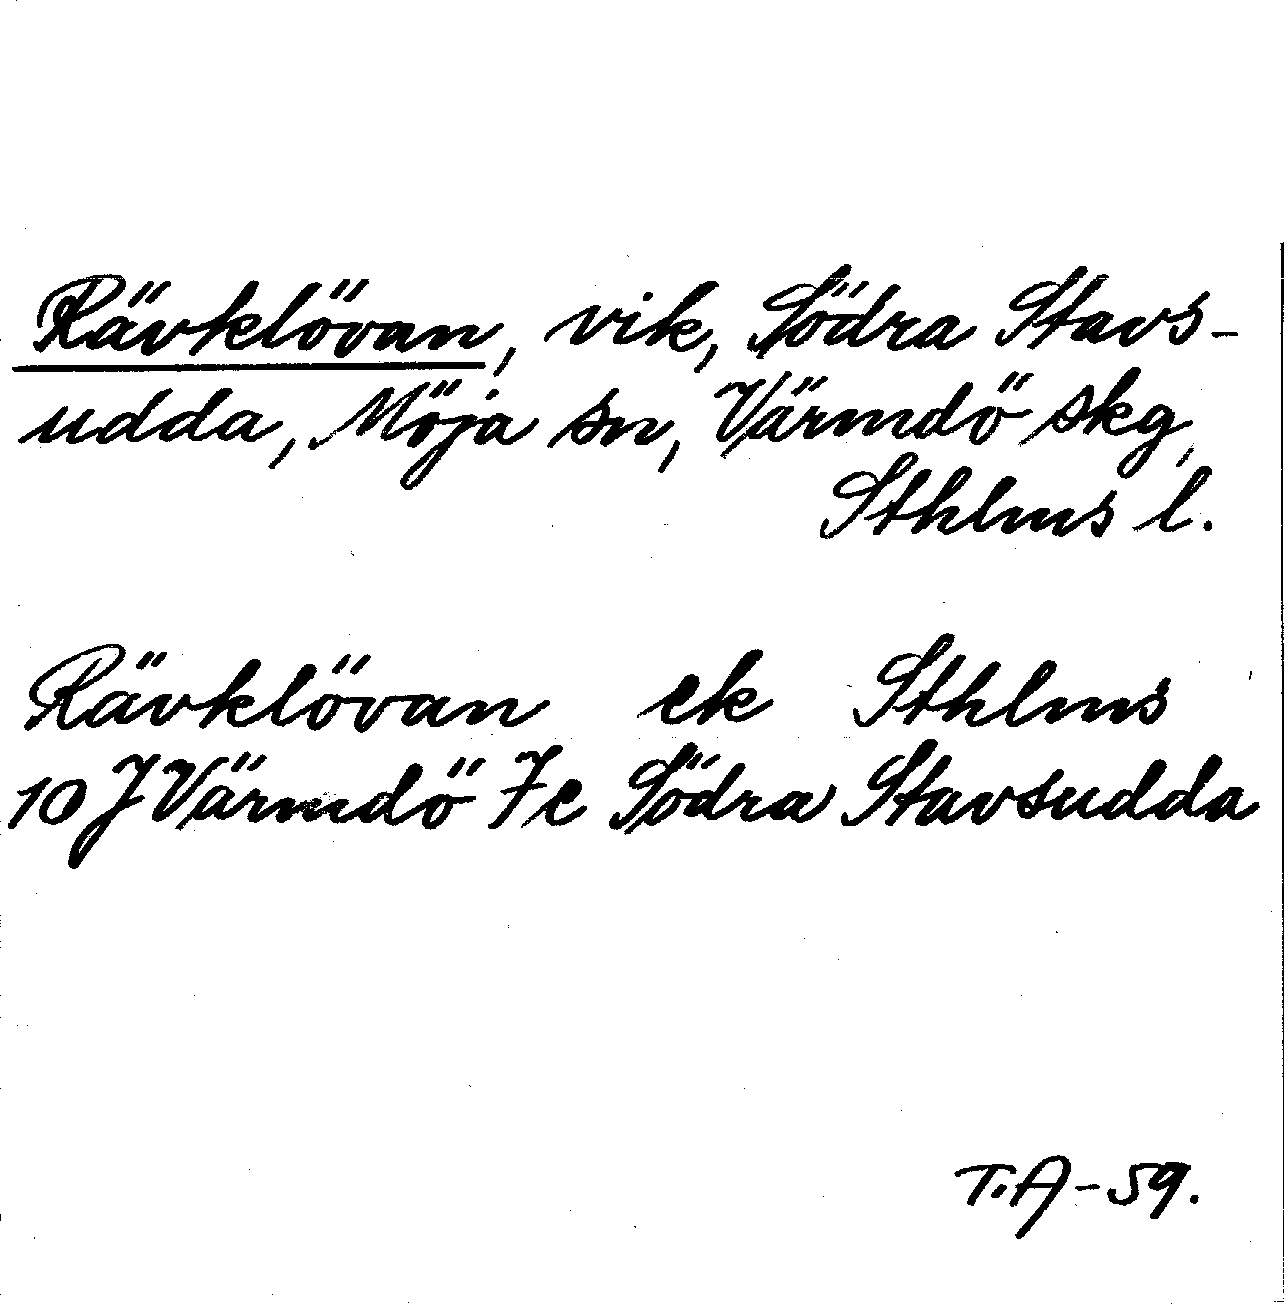 Rävklövan, vik, Södra Stavs-
udda, Möja sn, Värmdö skg,
Sthlms l.
Rävklövan ek Sthlms
10 J Värmdö 7c Södra Stavsudda
T.A-59.